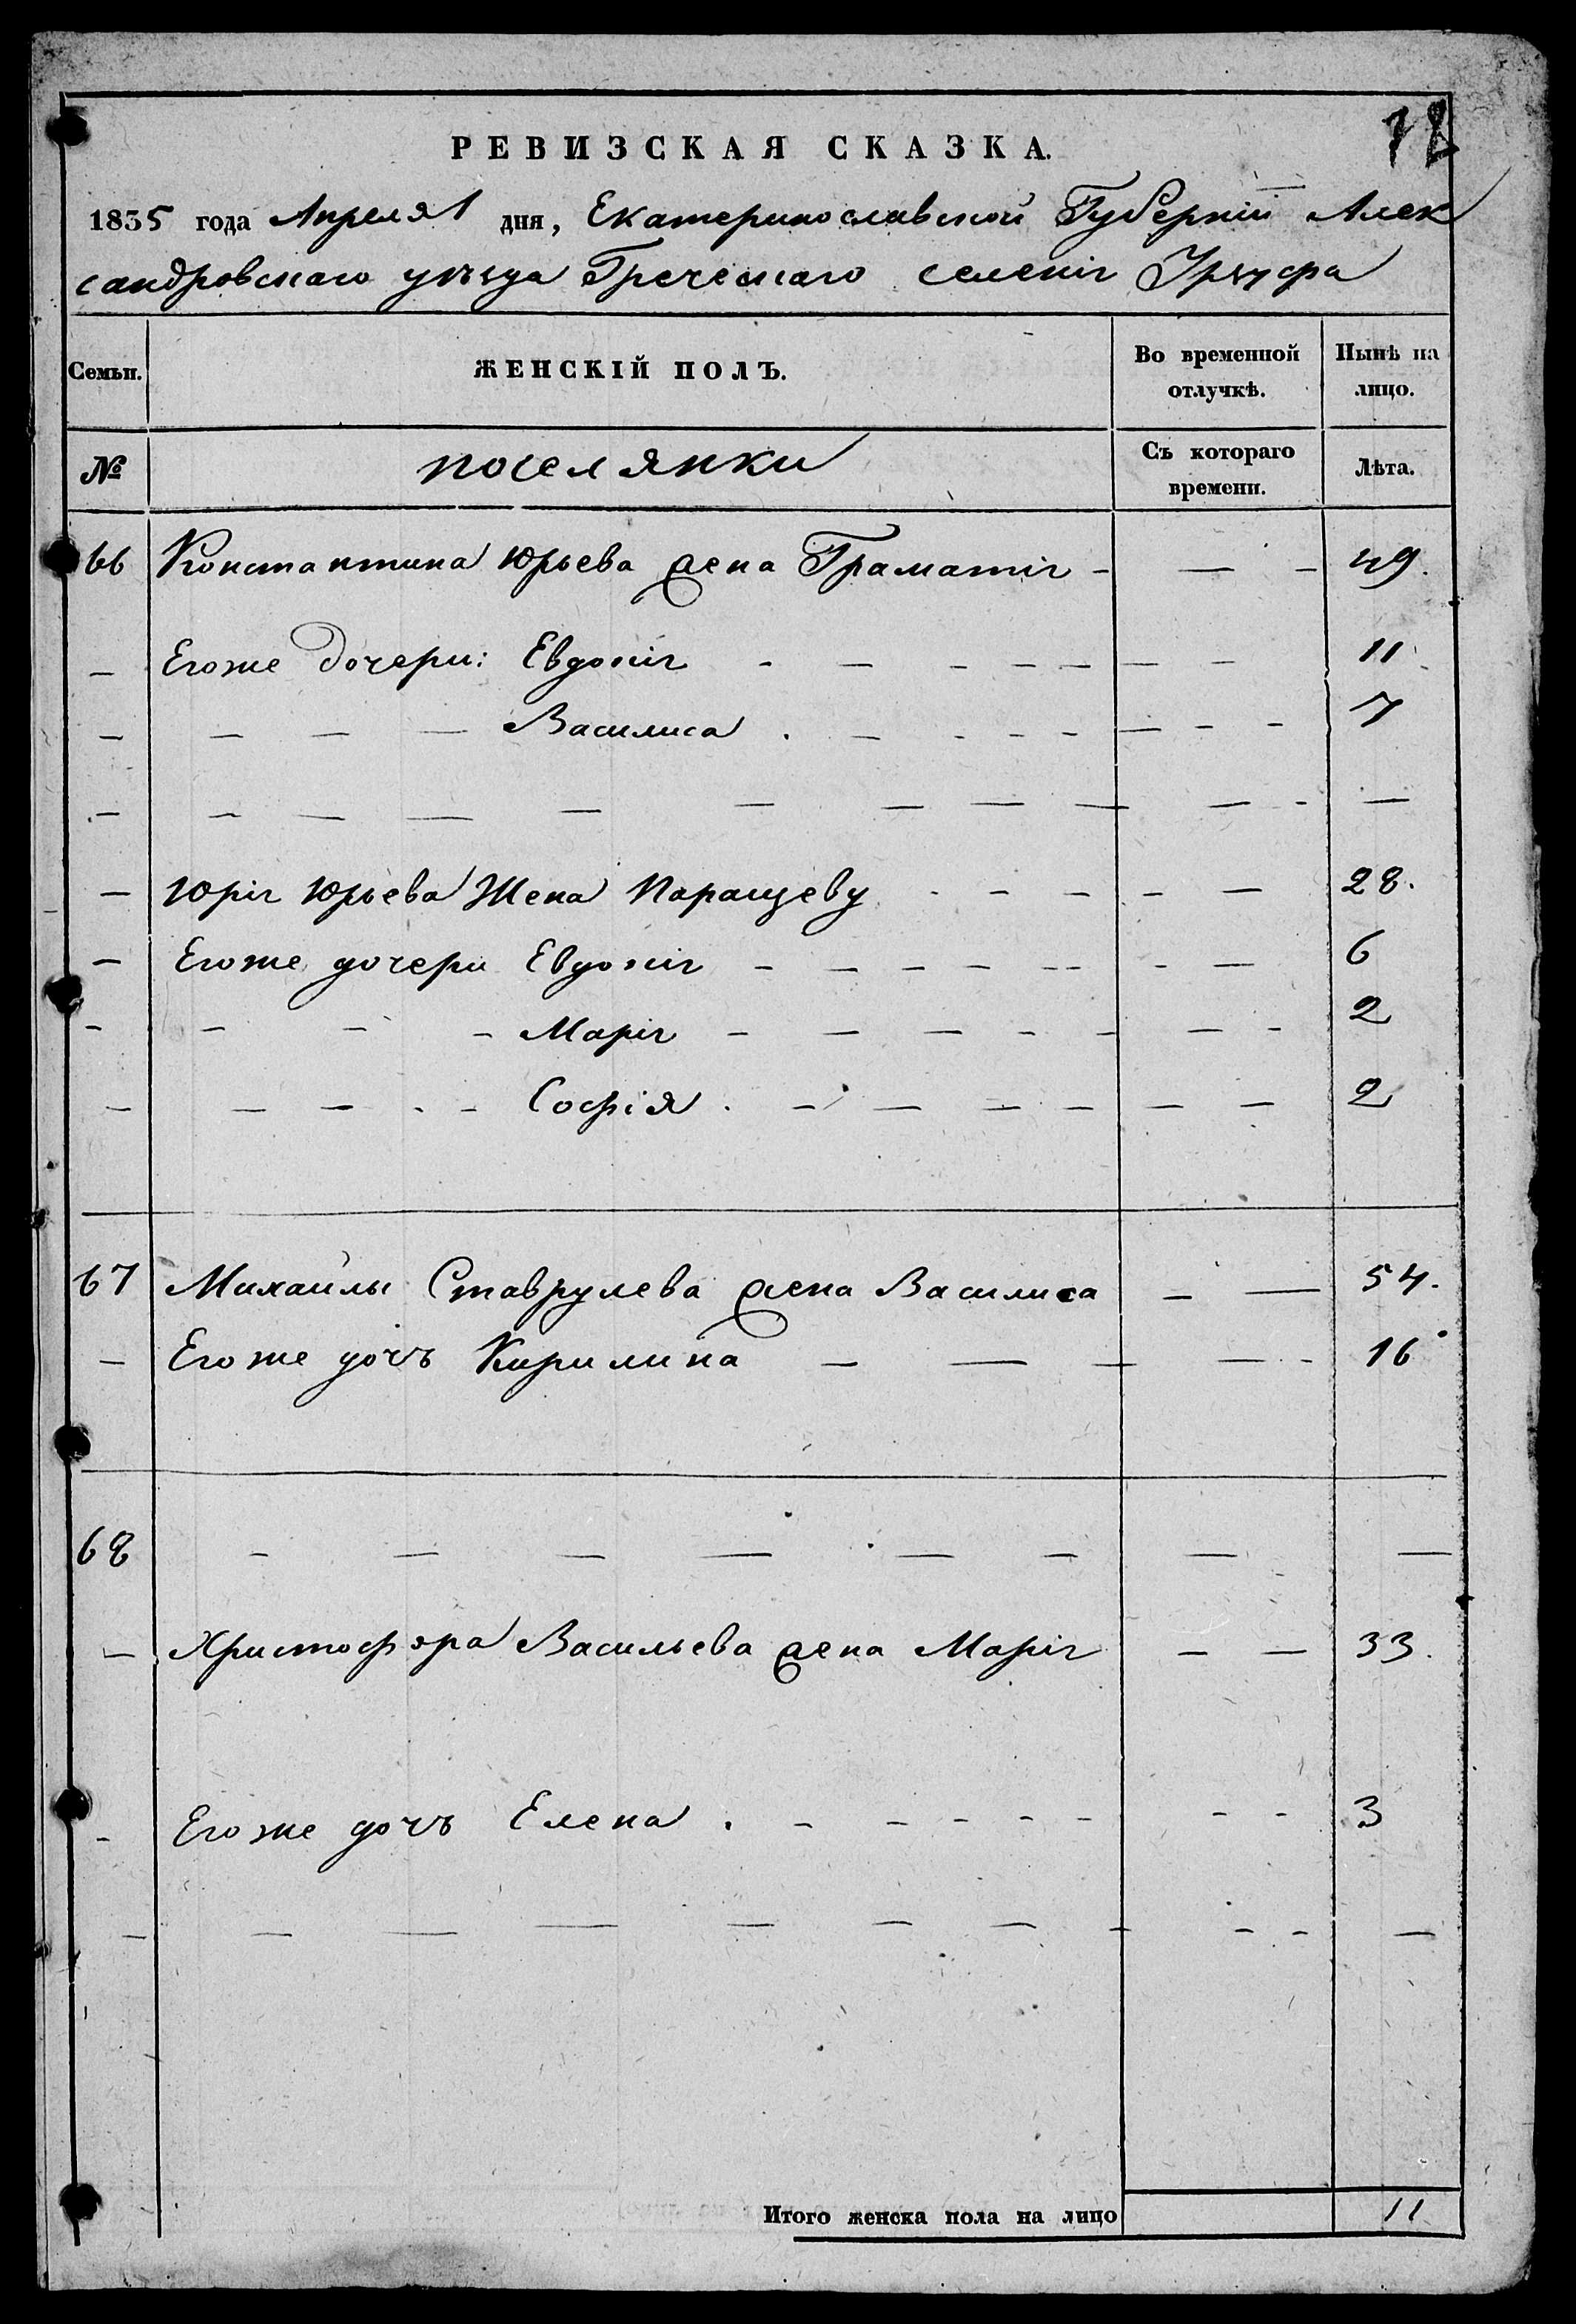 72
РЕВИЗСКАЯ СКАЗКА.
1835 года Апреля 1 дня, Екатеринославской Губерніи Алек
сандровскаго уѣзда Греческаго селенія Урзуфа
Семьи. ЖЕНСКІЙ ПОЛЪ. Во временной отлучкѣ. Нынѣ на лицо.
№ поселянки Съ котораго времени. Лѣта.
66 Константина Юрьева жена Граматія - — - 49.
— Егоже дочери: Евдокія - — - - — — - 11
— — — — Василиса . — - - - — - - 7
— - — — — — — — — — - —
— Юрія Юрьева Жена Паращеву - - — - — 28.
— Егоже дочери Евдокія - - - — -- - — 6
- - - - Марія - — — - - — - 2
— — — . - Софія . — — — — — — 2
67 Михайлы Ставрулева жена Василиса - — 54.
— Егоже дочъ Кирилина — — — — - 16
68 - — — — — — — —
— Христофора Васильева жена Марія — — 33.
- Егоже дочъ Елена . - - - - - - - 3
— — — — — — — - - - —
Итого женска пола на лицо 11